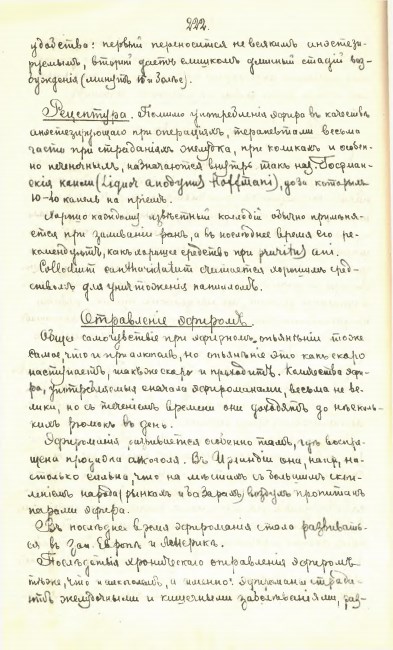 222.
удобства: первый переносится не всякимъ анестези-
руемымъ, второй даетъ слишкомъ длинный стадій воз-
бужденія (минутъ 10 и болѣе).
Рецептура. Помимо употребленія эфира въ качествѣ
анестезирующаго при операціяхъ, терапевтами весьма
часто при страданіяхъ желудка, при коликахъ и особен-
но печеночныхъ, назначаются внутрь такъ наз. Гофман-
скія капли (Liquor anodynus Hoffmani), доза которыхъ
10-40 капель на пріемъ.
Хорошо каждому извѣстный коллодій обычно примѣня-
ется при заливаніи ранъ, а въ послѣднее время его ре-
комендуютъ, какъ хорошее средство при pruritus ani.
Collodium cantharidatum считается хорошимъ сред-
ствомъ для уничтоженія папилломъ.
Отравленіе эфиромъ.
Общее самочувствіе при эфирномъ опьянѣніи тоже
самое, что и при алкоголѣ, но опьянѣніе это какъ скоро
наступаетъ, такъ же скоро и проходитъ. Количества эфи-
ра, употребляемыя сначала эфироманами, весьма не ве-
лики, но съ теченіемъ времени они доходятъ до нѣсколь-
кихъ рюмокъ въ день.
Эфироманія развивается особенно тамъ, гдѣ воспре-
щена продажа алкоголя. Въ Ирландіи она, напр., на-
столько сильна, что на мѣстахъ съ большимъ скоп-
леніемъ народа (рынкахъ и базарахъ) воздухъ пропитанъ
парами эфира.
Въ последнее время эфироманія стала развивать-
ся въ Зап. Европѣ и Америкѣ.
Послѣдствія хроническаго отравленія эфиромъ
тѣ же, что и алкоголемъ, а именно: эфироманы страда-
ютъ желудочными и кишечными заболѣваніями, раз-